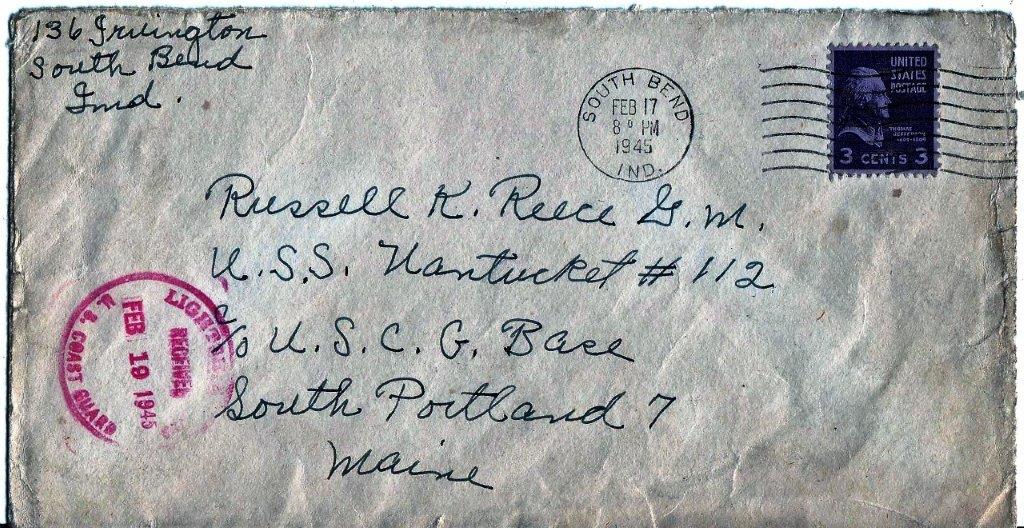 136 Irvington
South Bend
Ind.
SOUTH BEND
FEB 17
8 PM
1945
IND.
UNITED
STATES
POSTAGE
THOMAS
JEFFERSON
3 CENTS 3
Russell K. Reece G.M.
U.S.S. Nantucket # 112
c/o U.S.C.G. Base
South Portland 7
Maine
RECEIVED
FEB 19 1945
U.S. COAST GUARD